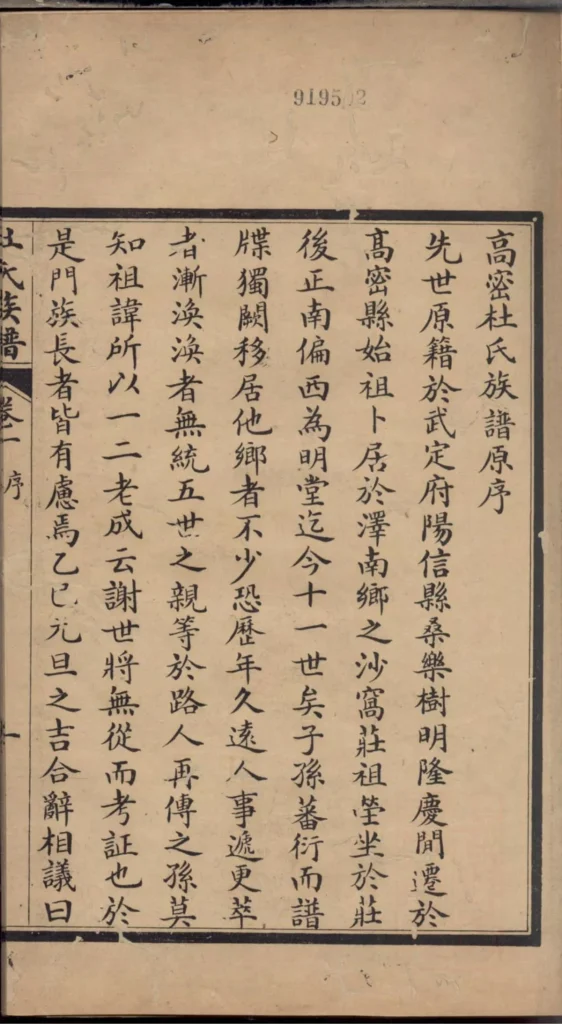 919502
高密杜氏族譜原序
先世原籍於武定府陽信縣桑樂樹明隆慶間遷於
高密縣始祖卜居於澤南鄉之沙窩莊祖塋坐於莊
後正南偏西為明堂迄今十一世矣子孫蕃衍而譜
牒獨闕移居他鄉者不少恐歷年久遠人事遞更萃
者漸渙渙者無統五世之親等於路人再傳之孫莫
知祖諱所以一二老成云謝世將無從而考証也於
是門族長者皆有慮焉乙巳元旦之吉合辭相議曰
杜氏族譜
卷一
序
一